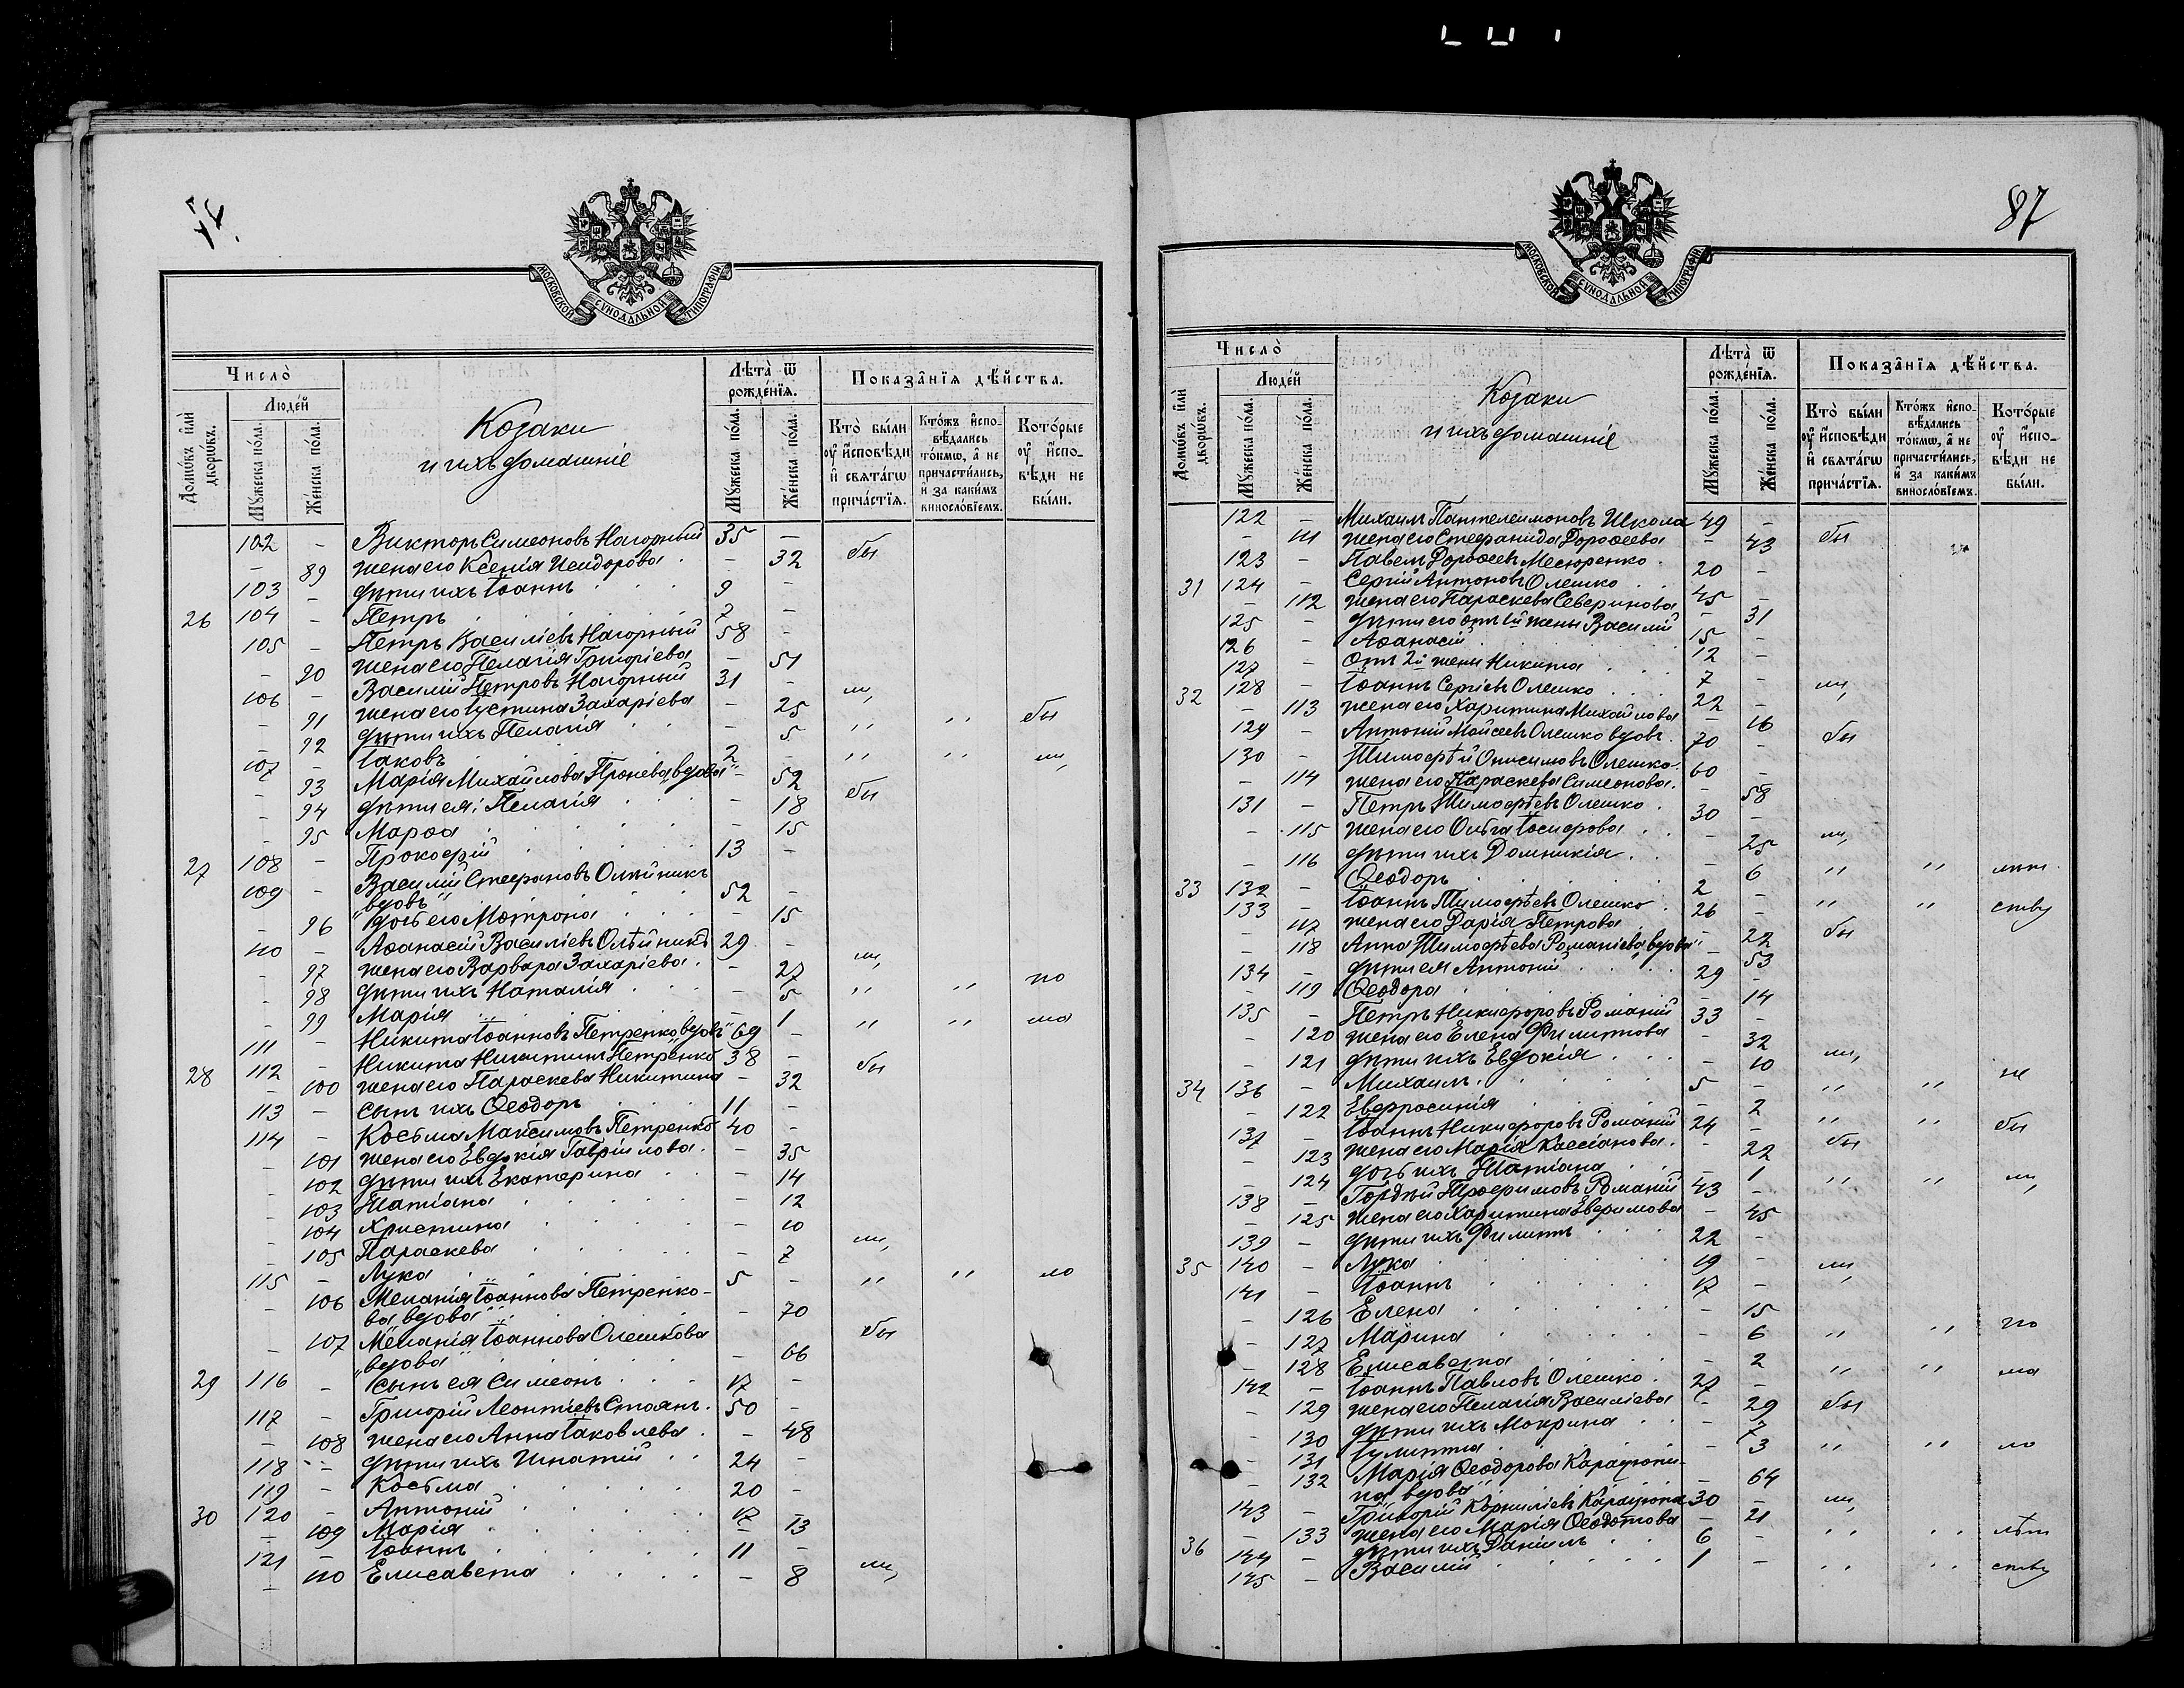 МОСКОВСКОЙ СѴНОДАЛЬНОЙ ТИПОГРАФІИ
Число̀
Домѡ́въ и҆лѝ дворѡ́въ.
Люде́й
Мꙋ́жеска по́ла.
Же́нска по́ла.
Козаки
и ихъ домашніе
Лѣ́та ѿ рожде́нїѧ.
Мꙋ́жеска по́ла.
Же́нска по́ла.
Показа̂нїѧ дѣ́йства.
Кто̀ бы́ли оу҆ и҆сповѣ́ди и҆ свѧта́гѡ прича́стїѧ.
Кто́жъ и҆спо-вѣ́дались то́кмѡ, а҆ не причасти́лись, и҆ за каки́мъ виносло́вїемъ.
Кото́рые оу҆ и҆спо-вѣ́ди не бы́ли.
102 - Викторъ Симеоновъ Нагорный 35 -
- 89 жена его Ксенія Исидорова - 32 бы
103 - дѣти ихъ Іоаннъ 9 -
26 104 - Петръ 7 -
105 - Петръ Василіевъ Нагорный 58 -
- 90 жена его Пелагія Григоріева - 51
106 - Василій Петровъ Нагорный 31 - ли,
- 91 жена его Іустина Захаріева - 25
- 92 дѣти ихъ Пелагія - 5 " " бы
107 - Іаковъ 2 - " " ли,
- 93 Марія Михайлова Пронева "вдова" - 52
- 94 дѣти ея: Пелагія - 18 бы
- 95 Марѳа - 15
27 108 - Прокофій 13 -
109 - Василій Стефановъ Олѣйникъ
"вдовъ" 52 -
- 96 дочь его Мотрона - 15
110 - Аѳанасій Василіевъ Олѣйникъ 29 -
- 97 жена его Варвара Захаріева - 27 ли,
- 98 дѣти ихъ Наталія - 5 " " по
- 99 Марія - 1 " " ма
111 - Никита Іоанновъ Петренко "вдовъ" 69 -
28 112 - Никита Никитинъ Петренко 38 - бы
- 100 жена его Параскева Никитина - 32
113 - сынъ ихъ Ѳеодоръ 11 -
114 - Косьма Максимовъ Петренко 40 -
- 101 жена его Евдокія Гавріилова - 35
- 102 дѣти ихъ Екатерина - 14
- 103 Татіана - 12
- 104 Христина - 10
- 105 Параскева - 7 ли,
115 - Лука 5 - " " ло
- 106 Меланія Іоаннова Петренко-
ва вдова" - 70
- 107 Меланія Іоаннова Олешкова бы
"вдова" - 66
29 116 - сынъ ея Симеонъ 17 -
117 - Григорій Леонтіевъ Стоянъ 50 -
- 108 жена его Анна Іаковлева - 48
118 - дѣти ихъ Игнатій 24 -
119 - Косьма 20 -
30 120 - Антоній 17 -
- 109 Марія - 13
121 - Іоаннъ 11 -
- 110 Елисавета - 8 ли,
87
МОСКОВСКОЙ СѴНОДАЛЬНОЙ ТИПОГРАФІИ
Число̀
Домѡ́въ и҆лѝ дворѡ́въ.
Люде́й
Мꙋ́жеска по́ла.
Же́нска по́ла.
Козаки
и ихъ домашніе
Лѣ́та ѿ рожде́нїѧ.
Мꙋ́жеска по́ла.
Же́нска по́ла.
Показа̂нїѧ дѣ́йства.
Кто̀ бы́ли оу҆ и҆сповѣ́ди и҆ свѧта́гѡ прича́стїѧ.
Кто́жъ и҆спо-вѣ́дались то́кмѡ, а҆ не причасти́лись, и҆ за каки́мъ виносло́вїемъ.
Кото́рые оу҆ и҆спо-вѣ́ди не бы́ли.
122 - Михаилъ Пантелеимоновъ Школа 49 -
- 111 жена его Стефанида Дороѳеева - 43 бы
123 - Павелъ Дороѳеевъ Месюренко 20 -
31 124 - Сергій Антоновъ Олешко 45 -
- 112 жена его Параскева Северинова - 31
125 - дѣти его отъ 1й жены Василій 15 -
126 - Аѳанасій 12 -
127 - отъ 2й жены Никита 7 -
32 128 - Іоаннъ Сергіевъ Олешко 22 - ли,
- 113 жена его Харитина Михайлова - 16
129 - Антоній Моисеевъ Олешко вдовъ 70 - бы
130 - Тимоѳей Онисимовъ Олешко 60 -
- 114 жена его Параскева Симеонова - 58
131 - Петръ Тимоѳеевъ Олешко 30 -
- 115 жена его Ольга Іосифова - 25 ли,
- 116 дѣти ихъ Домникія - 6 " "
33 132 - Ѳеодоръ 2 - " " ству
133 - Іоаннъ Тимоѳеевъ Олешко 26 -
- 117 жена его Дарія Петрова - 22 бы
- 118 Анна Тимоѳеева Романіева "вдова" - 53
134 - дѣти ея Антоній 29 -
- 119 Ѳеодора - 14
135 - Петръ Никифоровъ Романій 33 -
- 120 жена его Елена Филиппова - 32
- 121 дѣти ихъ Евдокія - 10 ли,
34 136 - Михаилъ 5 - " " не
- 122 Евфросинія - 2 " " бы
137 - Іоаннъ Никифоровъ Романій 24 -
- 123 жена его Марія Кассіанова - 22 бы
- 124 дочь ихъ Татіана - 1 " " ли,
138 - Гордѣй Трофимовъ Романій 43 -
- 125 жена его Харитина Ефимова - 45
139 - дѣти ихъ Филиппъ 22 -
35 140 - Лука 19 - ли,
141 - Іоаннъ 17 -
- 126 Елена - 15
- 127 Марина - 6 " " по
- 128 Елисавета - 2 " " ма
142 - Іоаннъ Павловъ Олешко 27 -
- 129 жена его Пелагія Василіева - 29 бы
- 130 дѣти ихъ Мокрина - 7
- 131 Іулитта - 3 " " ло
- 132 Марія Ѳеодорова
на вдова" - 64
143 - Григорій Корниліевъ 30 - ли,
- 133 жена его Марія Ѳеодотова - 21
36 144 - дѣти ихъ Даніилъ 6 - " " лѣт
145 - Василій 1 - " " ству